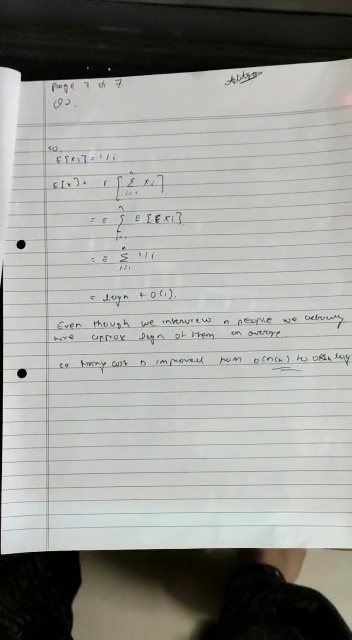 Page 7 of 7
Q2.
so,
E[Xi] = 1/i
E[x] = E [ n Σ i=1 Xi ]
= ε n Σ i=1 E[Xi]
= ε n Σ i=1 1/i
= logn + O(1).
Even though we interview n people we actually
hire approx logn of them on average.
so hiring cost is improved from O(nCh) to O(Ch log